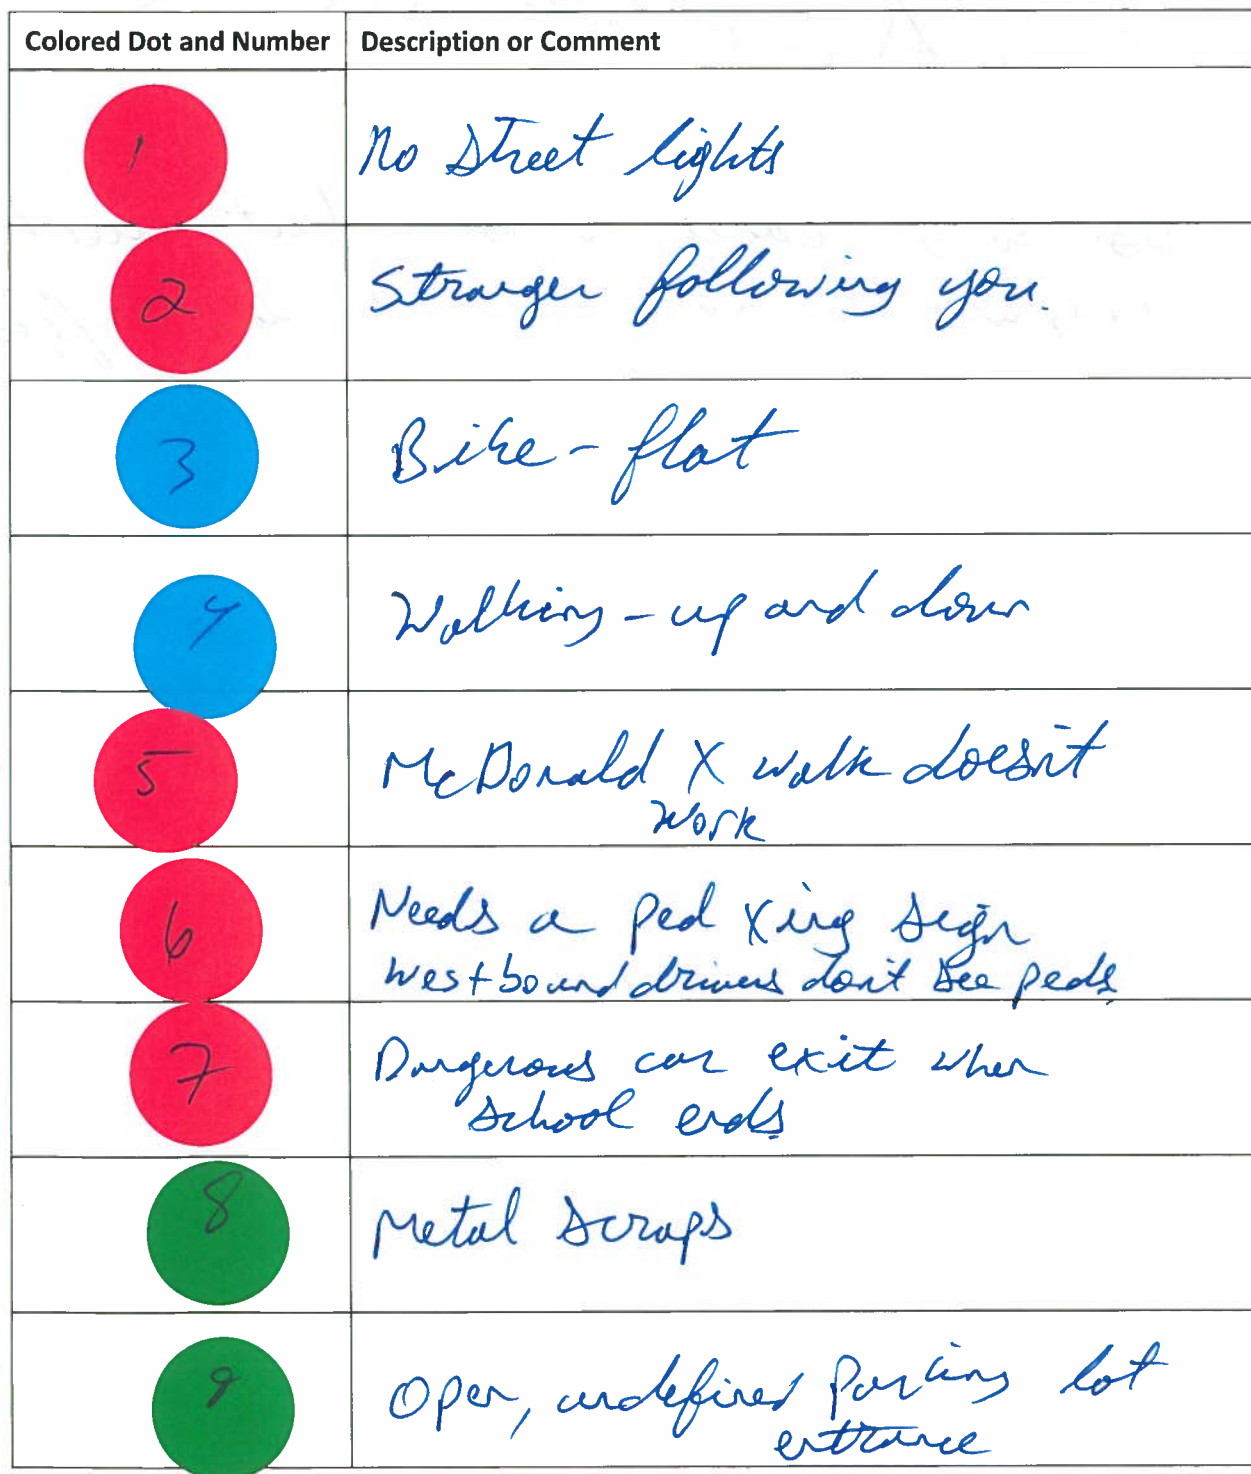 Colored Dot and Number Description or Comment
1 No Street lights
2 Stranger following you.
3 Bike - flat
4 Walking - up and down
5 McDonald X walk doesn't
work
6 Needs a ped Xing sign
westbound drivers don't see peds
7 Dangerous car exit when
school ends
8 Metal scraps
9 Open, undefined Parking lot
entrance